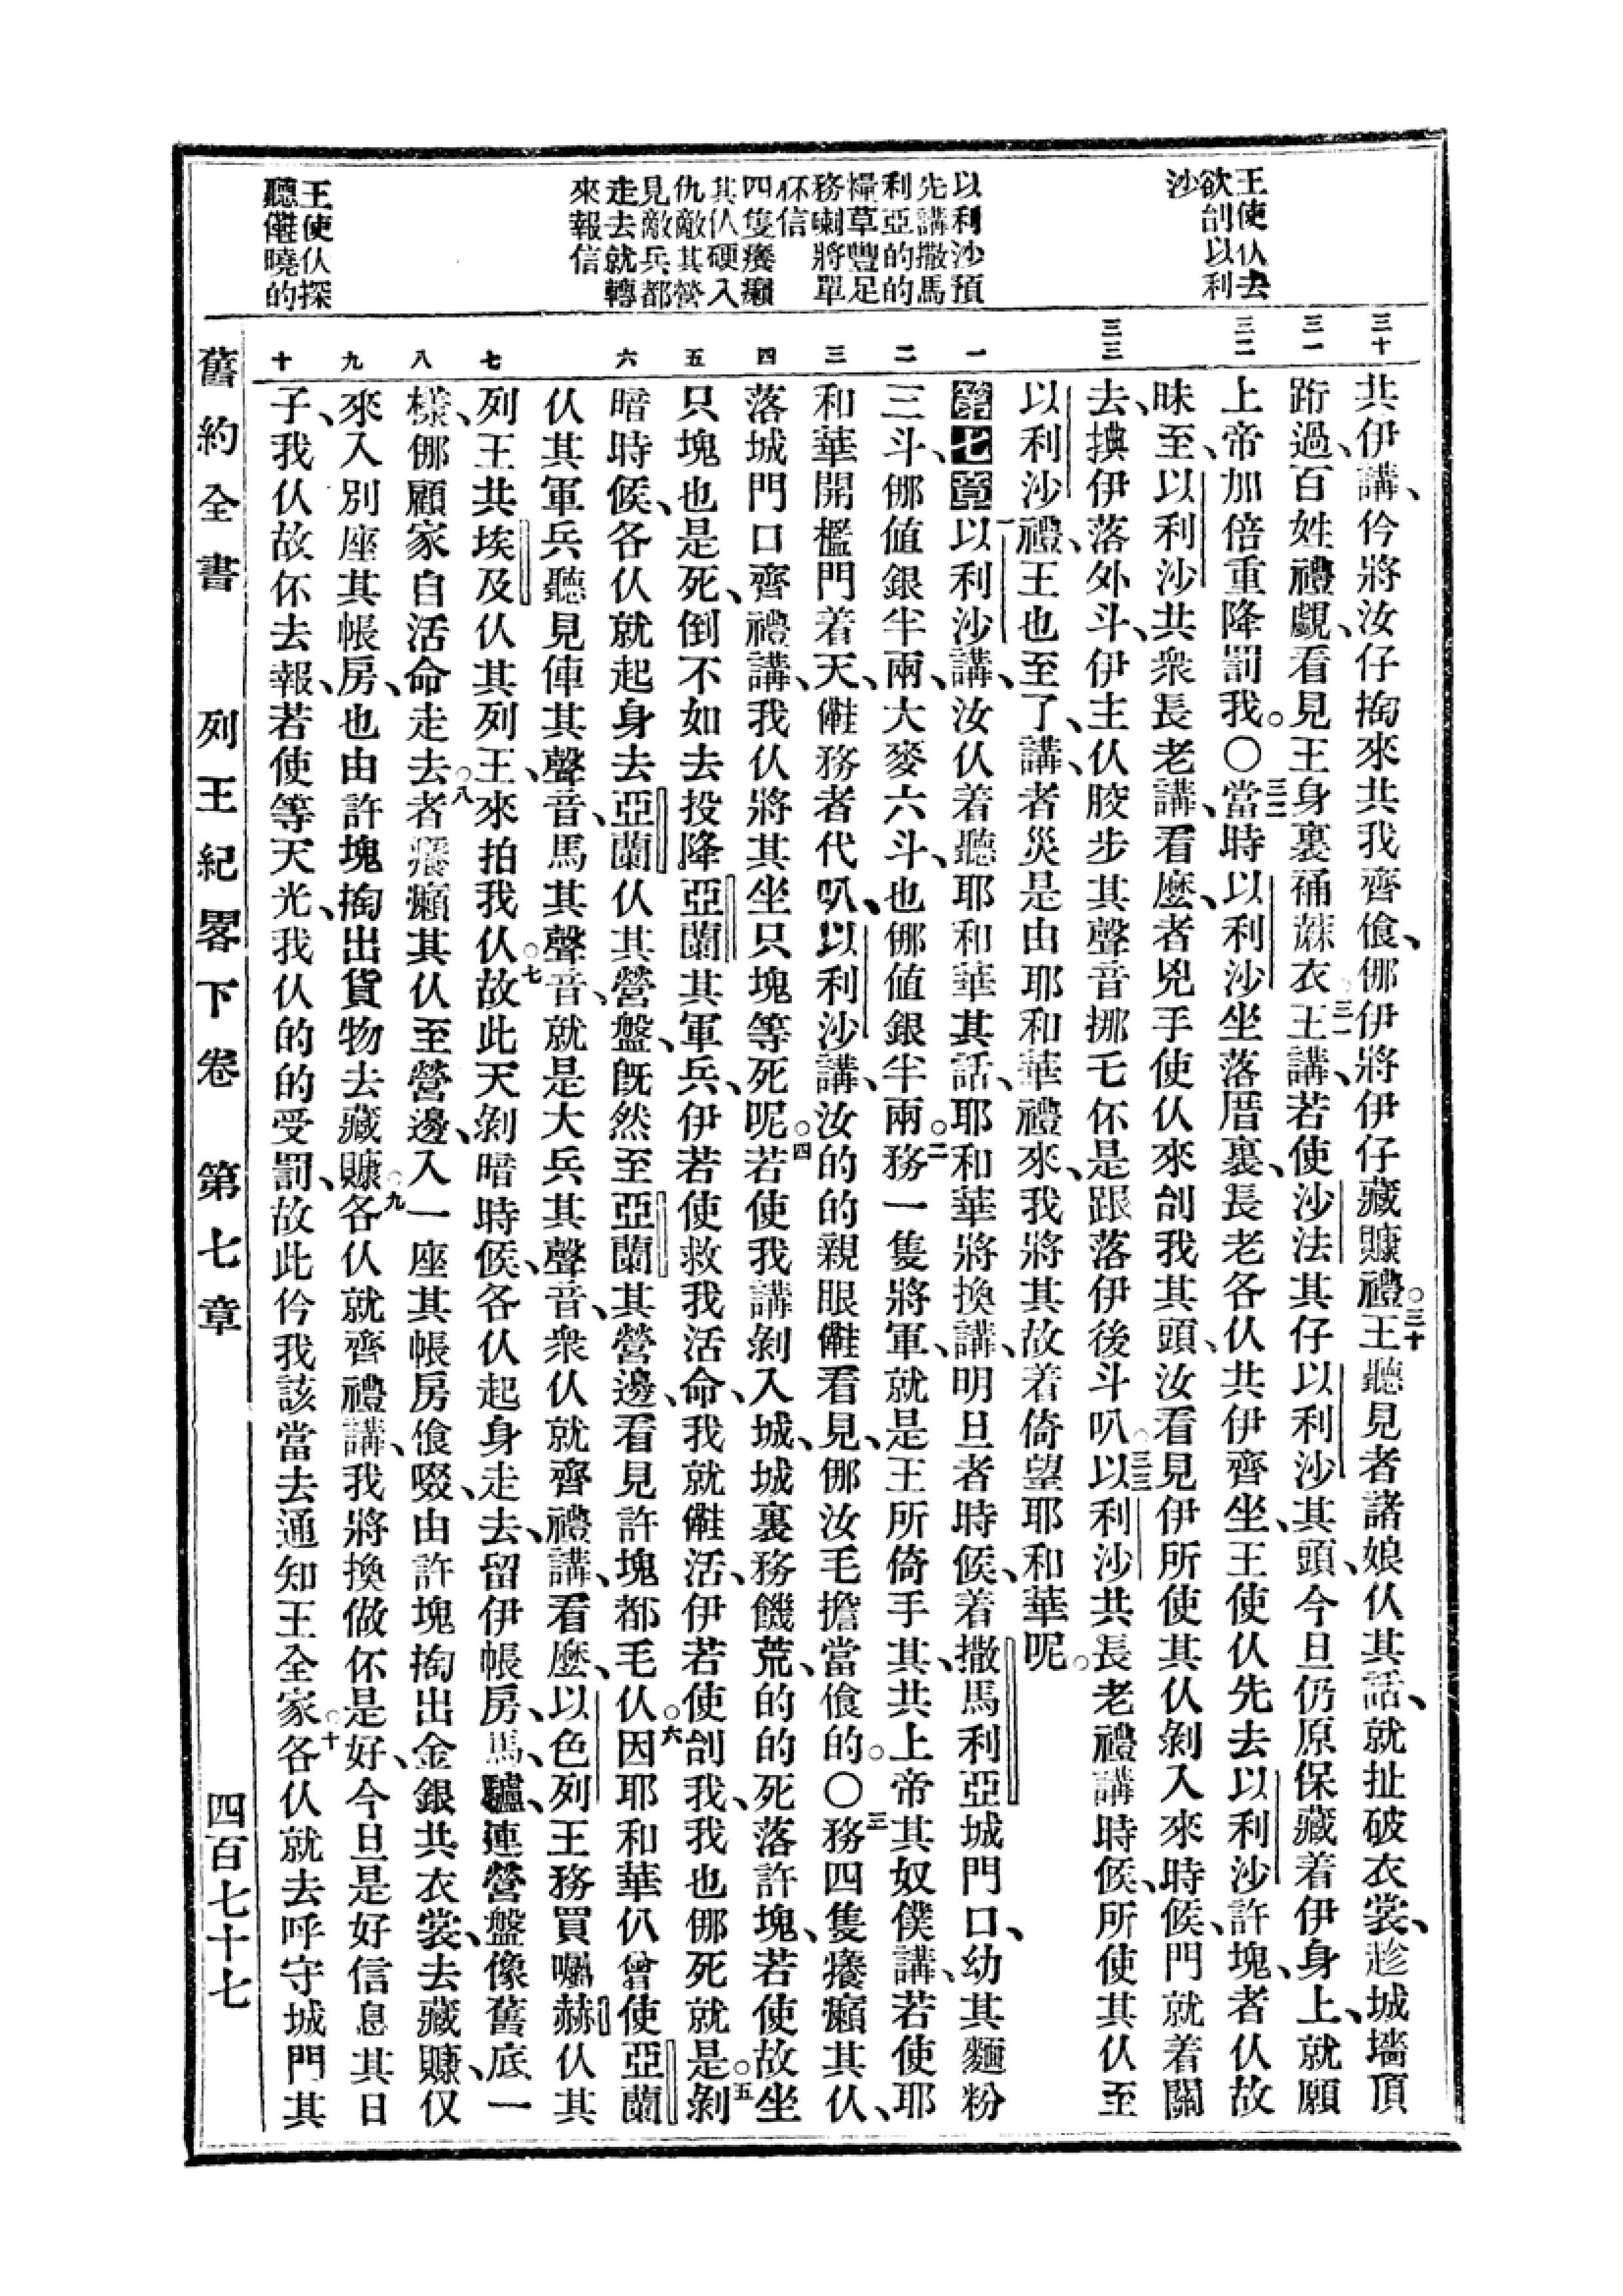 王使仫去
欲刣以利
沙
以利沙預
先講撒馬
利亞的的
糧草豐足
務喇將單
伓信
四隻癢癩
其仫硬入
仇敵其營
見敵兵都
走去就轉
來報信
王使仫探
聽㑚曉的
三十
三一
三二
三三
一
二
三
四
五
六
七
八
九
十
共伊講、仱將汝仔掏來共我齊飡、挪伊將伊仔藏賺禮○三十王聽見者諸娘仫其話、就扯破衣裳、趁城墻頂
跱過、百姓禮覷、看見王身裏補蔴衣三一王講、若使沙法其仔以利沙其頭、今旦仍原保藏着伊身上、就願
上帝加倍重降罰我。〇三二當時以利沙坐落厝裏、長老各仫共伊齊坐、王使仫先去以利沙許塊、者仫故
昧至、以利沙共衆長老講、看麽、者兇手使仫來刣我其頭、汝看見伊所使其仫剝入來時候、門就着關
去、㨃伊落外斗、伊主仫骹步其聲音挪乇伓是跟落伊後斗叭○三三以利沙共長老禮講時候、所使其仫至
以利沙禮、王也至了、講、者災是由耶和華禮來、我將其故着倚望耶和華呢。
第七章以利沙講、汝仫着聽耶和華其話、耶和華將換講、明旦者時候、着撒馬利亞城門口、幼其麵粉
三斗、挪值銀半兩、大麥六斗、也挪值銀半兩○二務一隻將軍、就是王所倚手其、共上帝其奴僕講、若使耶
和華開檻門着天、㑚務者代叭、以利沙講、汝的的親眼㑚看見、挪汝毛擔當飡的。〇三務四隻癢癩其仫、
落城門口齊禮講、我仫將其坐只塊等死呢○四若使我講剝入城、城裏務饑荒、的的死落許塊、若使故坐
只塊也是死、倒不如去投降亞蘭其軍兵、伊若使救我活命、我就㑚活、伊若使刣我、我也挪死就是○五剝
暗時候、各仫就起身去亞蘭仫其營盤、既然至亞蘭其營邊、看見許塊都毛仫○六因耶和華仈曾使亞蘭
仫其軍兵聽見俥其聲音、馬其聲音、就是大兵其聲音、衆仫就齊禮講、看麽、以色列王務買囑赫仫其
列王共埃及仫其列王、來拍我仫○七故此天剝暗時候、各仫起身走去、留伊帳房、馬、驢、連營盤像舊底一
樣、挪顧家自活命走去○八者癢癩其仫至營邊、入一座其帳房飡啜、由許塊掏出金銀共衣裳、去藏賺、仅
來入別座其帳房、也由許塊掏出貨物去藏賺○九各仫就齊禮講、我將換做伓是好、今旦是好信息其日
子、我仫故伓去報、若使等天光、我仫的的受罰、故此仱我該當去通知王全家○十各仫就去呼守城門其
舊約全書 列王紀畧下卷 第七章 四百七十七